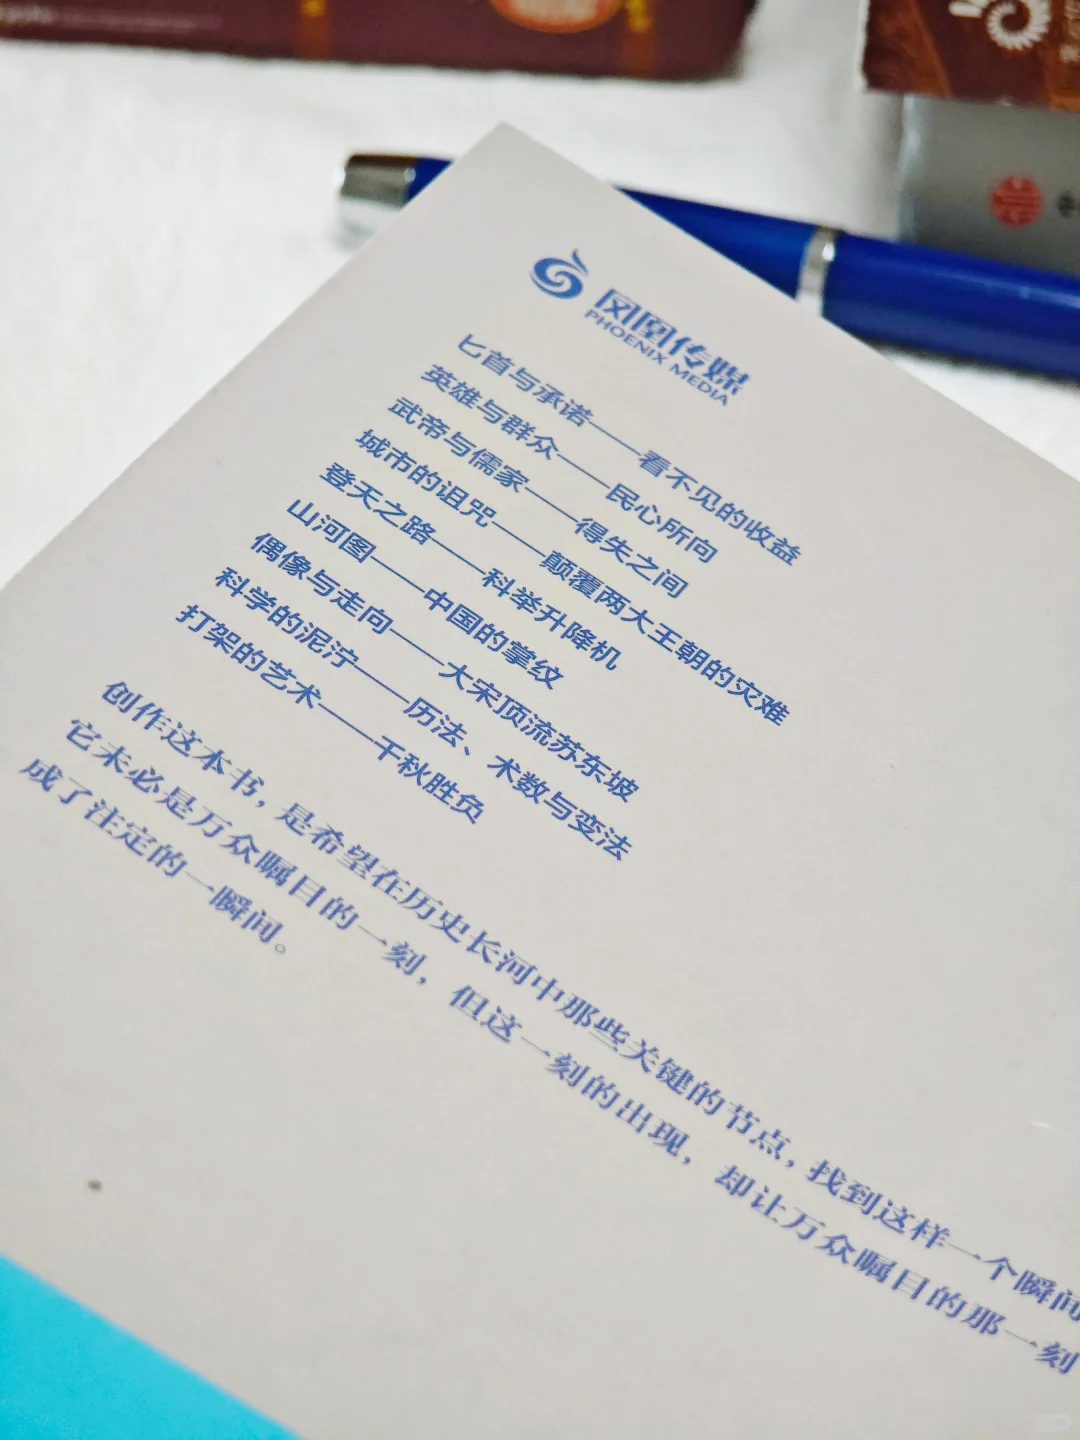 凤凰传媒
PHOENIX MEDIA
匕首与承诺——看不见的收益
英雄与群众——民心所向
武帝与儒家——得失之间
城市的诅咒——颠覆两大王朝的灾难
登天之路——科举升降机
山河图——中国的掌纹
偶像与走向——大宋顶流苏东坡
科学的泥泞——历法、术数与变法
打架的艺术——千秋胜负
创作这本书，是希望在历史长河中那些关键的节点，找到这样一个瞬间
它未必是万众瞩目的一刻，但这一刻的出现，却让万众瞩目的那一刻
成了注定的一瞬间。